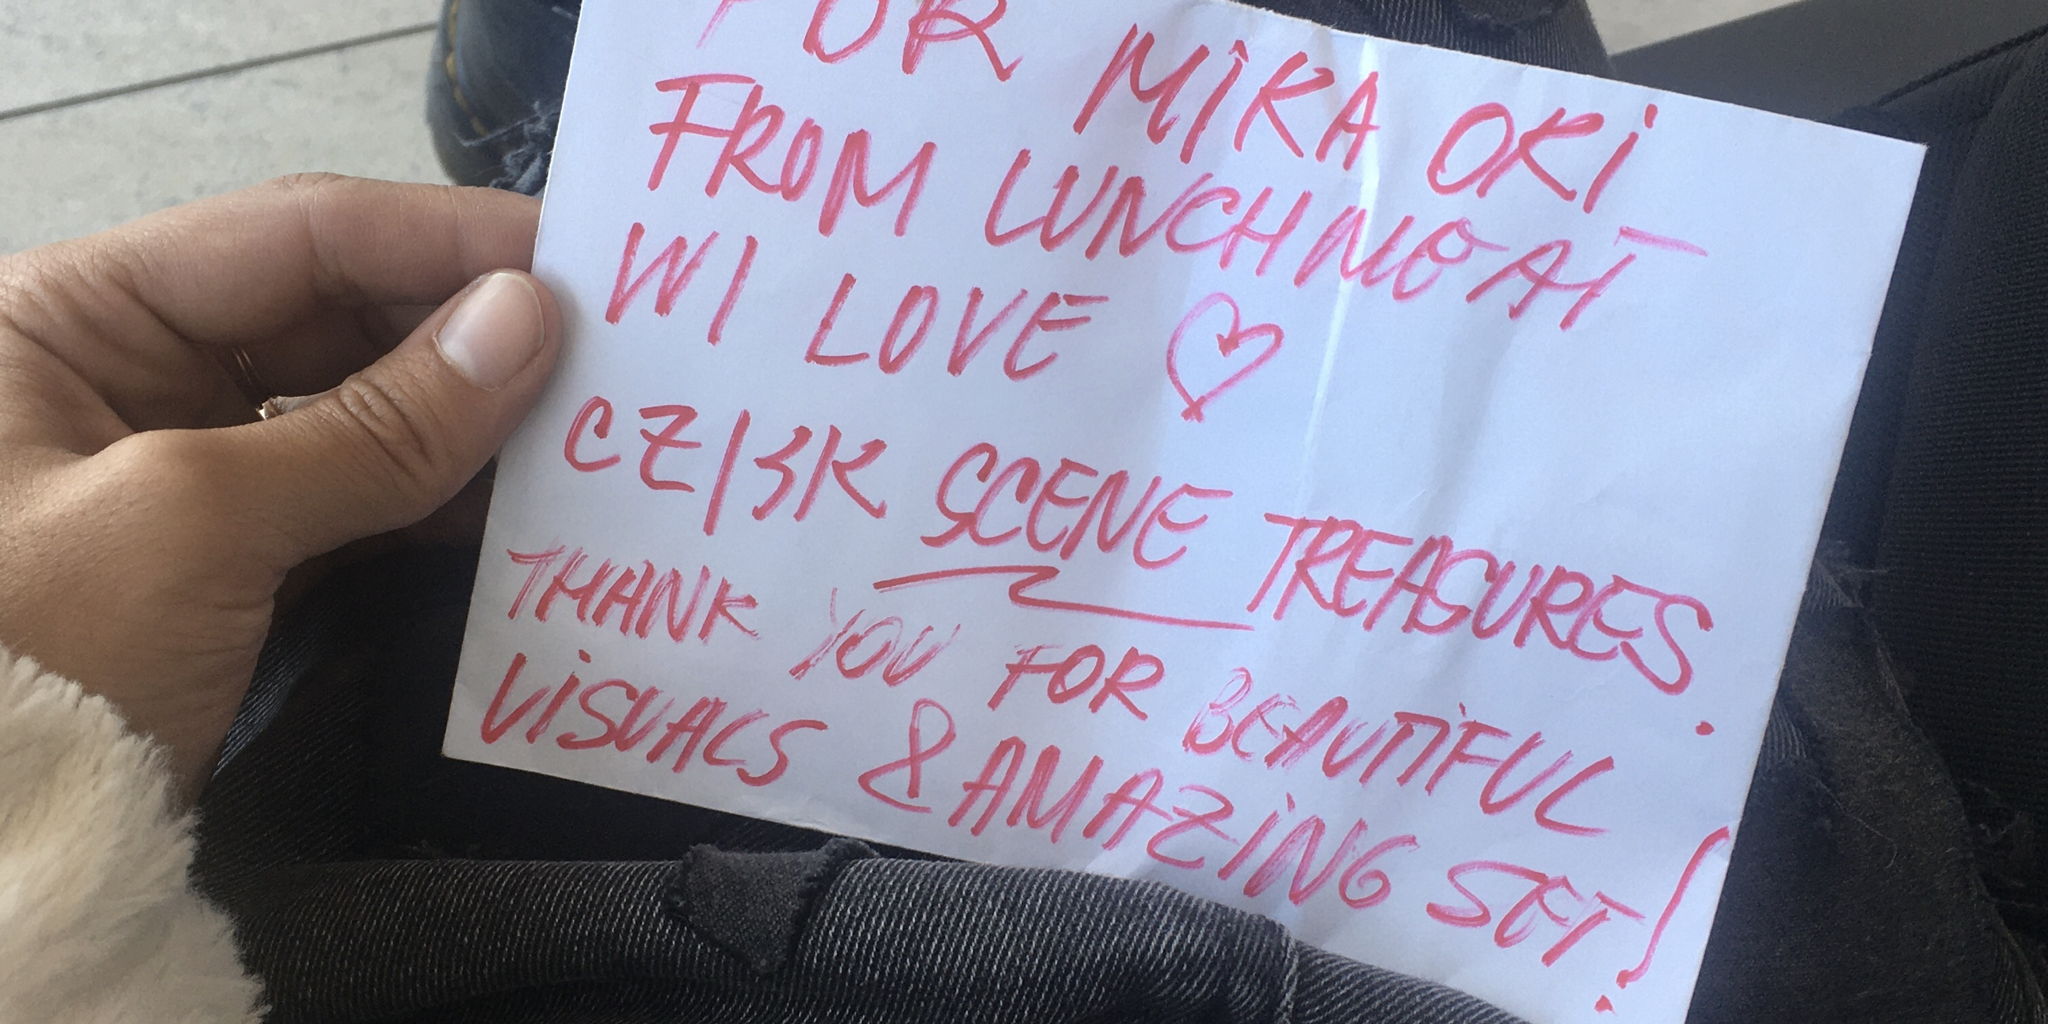 FOR MIKA OKI
FROM LUNCHMEAT
WI LOVE ♡
CZ/SK SCENE TREASURES.
THANK YOU FOR BEAUTIFUL
VISUALS & AMAZING SET!